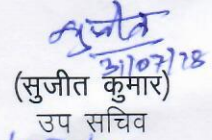 सुजीत
31/07/18
(सुजीत कुमार)
उप सचिव